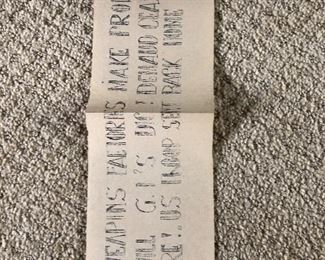 EAPINS FACTORIES MAKE PRO
ILL G.I'S DIE! DEMAND CEA
RE! US TROOP SEN BACK HOME